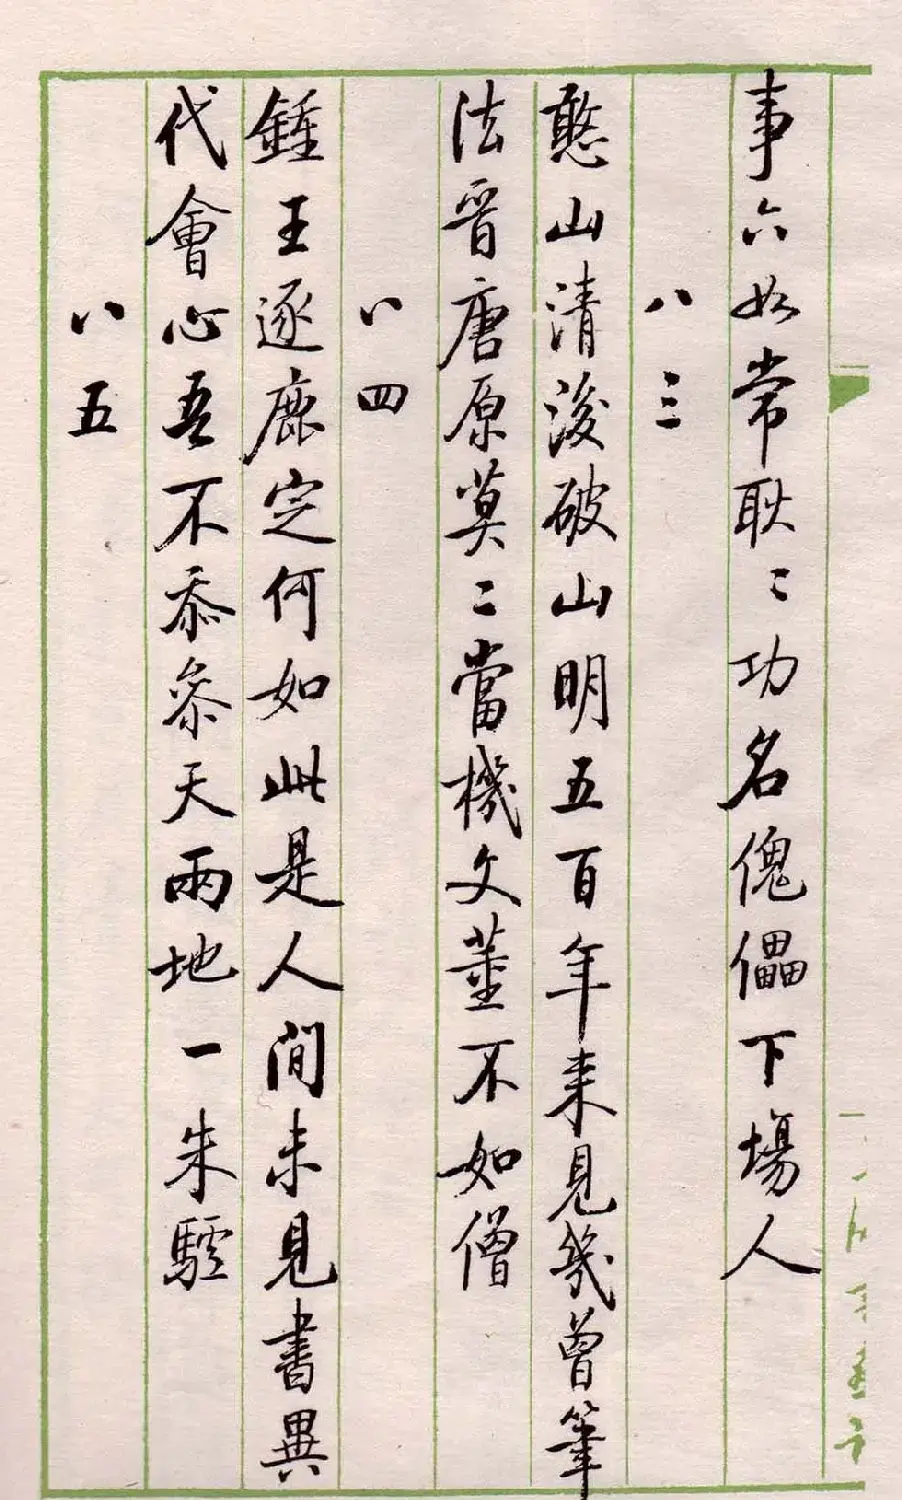 事六如常耿〻功名傀儡下場人
八三
憨山清後破山明五百年来見幾曾筆
法晋唐原莫〻當機文董不如僧
八四
鍾王逐鹿定何如此是人間未見書異
代會心吾不忝參天兩地一朱驢
八五